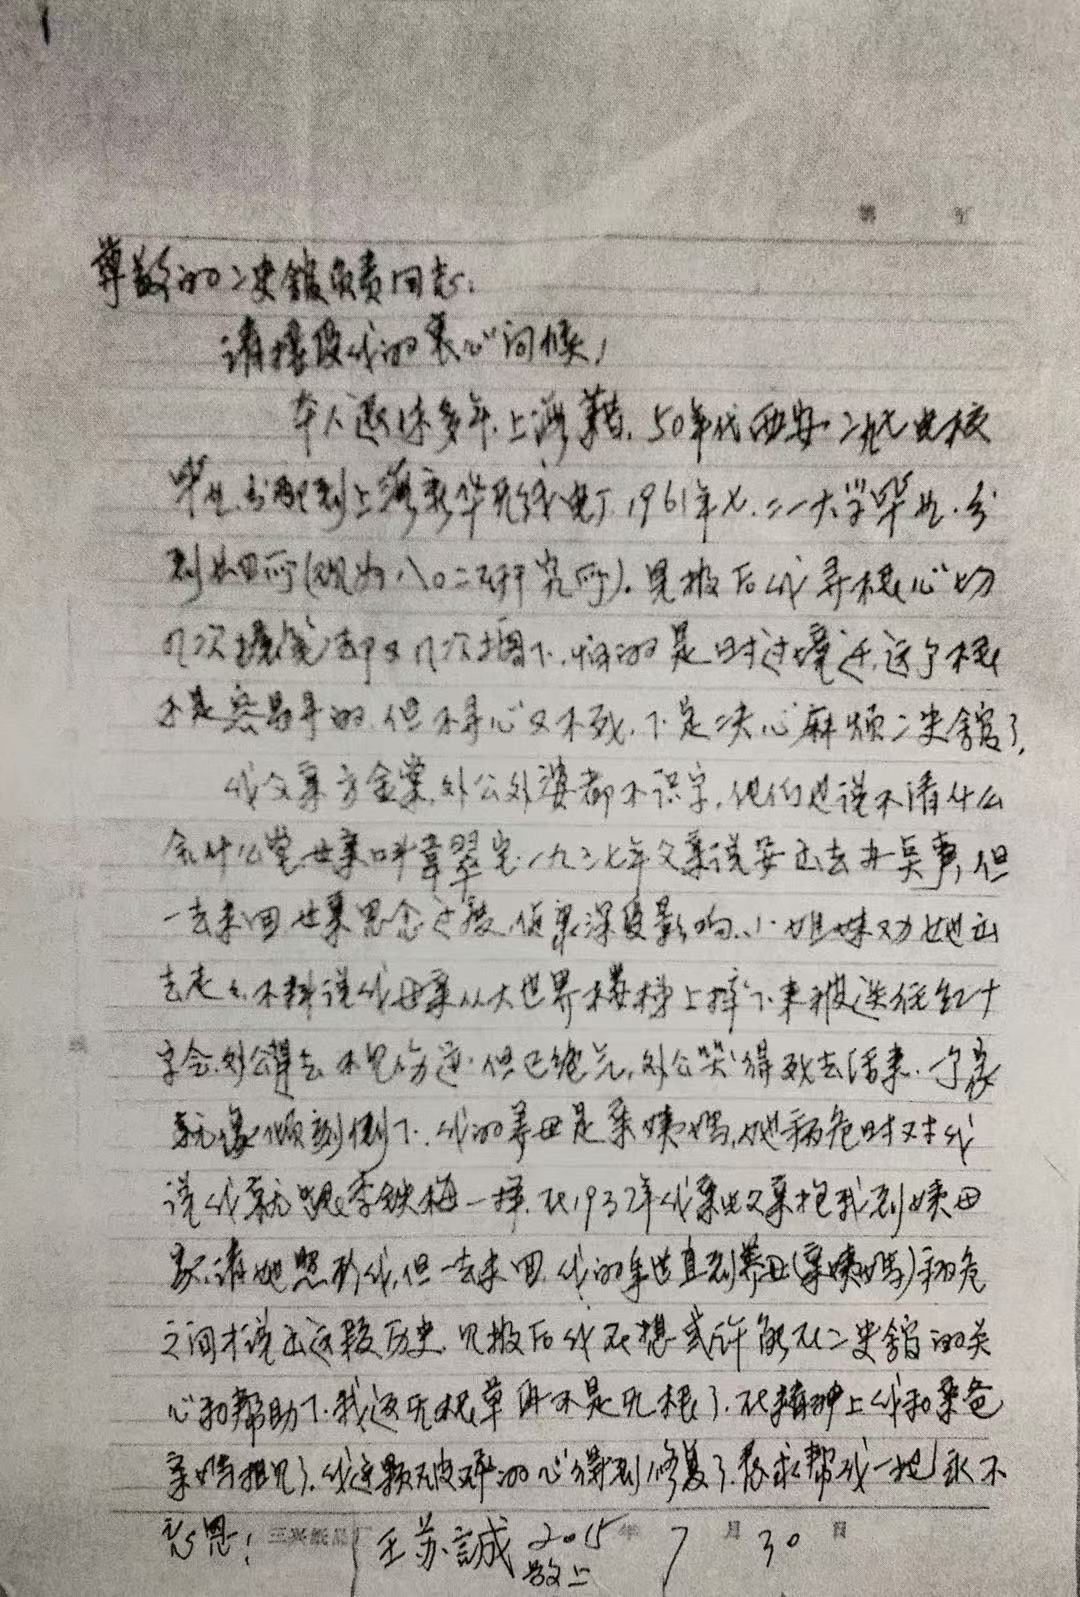 1
第 页
尊敬的二史馆负责同志：
请接受我的衷心问候！
本人退休多年，上海籍，50年代西安二九七电校
毕业，分配到上海新华无线电厂，1961年七二一大学毕业，分
到四所（现为八〇二研究所）。见报后我寻根心切
几次提笔却又几次搁下，怕的是时过境迁，这个根
不是容易寻的，但不寻心又不死，下定决心麻烦二史馆了，
我父亲方金棠，外公外婆都不识字，他们也说不清什么
会什么党，母亲叫韦翠宝，一九三七年父亲说要出去办吴事，但
一去未回，母亲思念过度，侦察深受影响，小姐妹劝她出
去走走，不料说我母亲从大世界楼梯上摔下来被送往红十
字会，外公得去不见伤迹，但已绝气，外公哭得死去活来，一个家
就像倾刻倒下，我的养母是亲姨妈，她病危时对我
说我就跟李铁梅一样，在1937年我亲生父亲抱我到姨母
家请她照顾我，但一去未回，我的身世直到养母（亲姨妈）病危
之间才说出这段历史，见报后我在想或许能在二史馆的关
心和帮助下，我这无根草再不是无根了，在精神上我和亲爸
亲妈相见了，我这颗破碎的心得到修复了，恳求帮我一把！永不
忘恩！ 三兴纸品厂 王苏誠 2015年7月30日
敬上